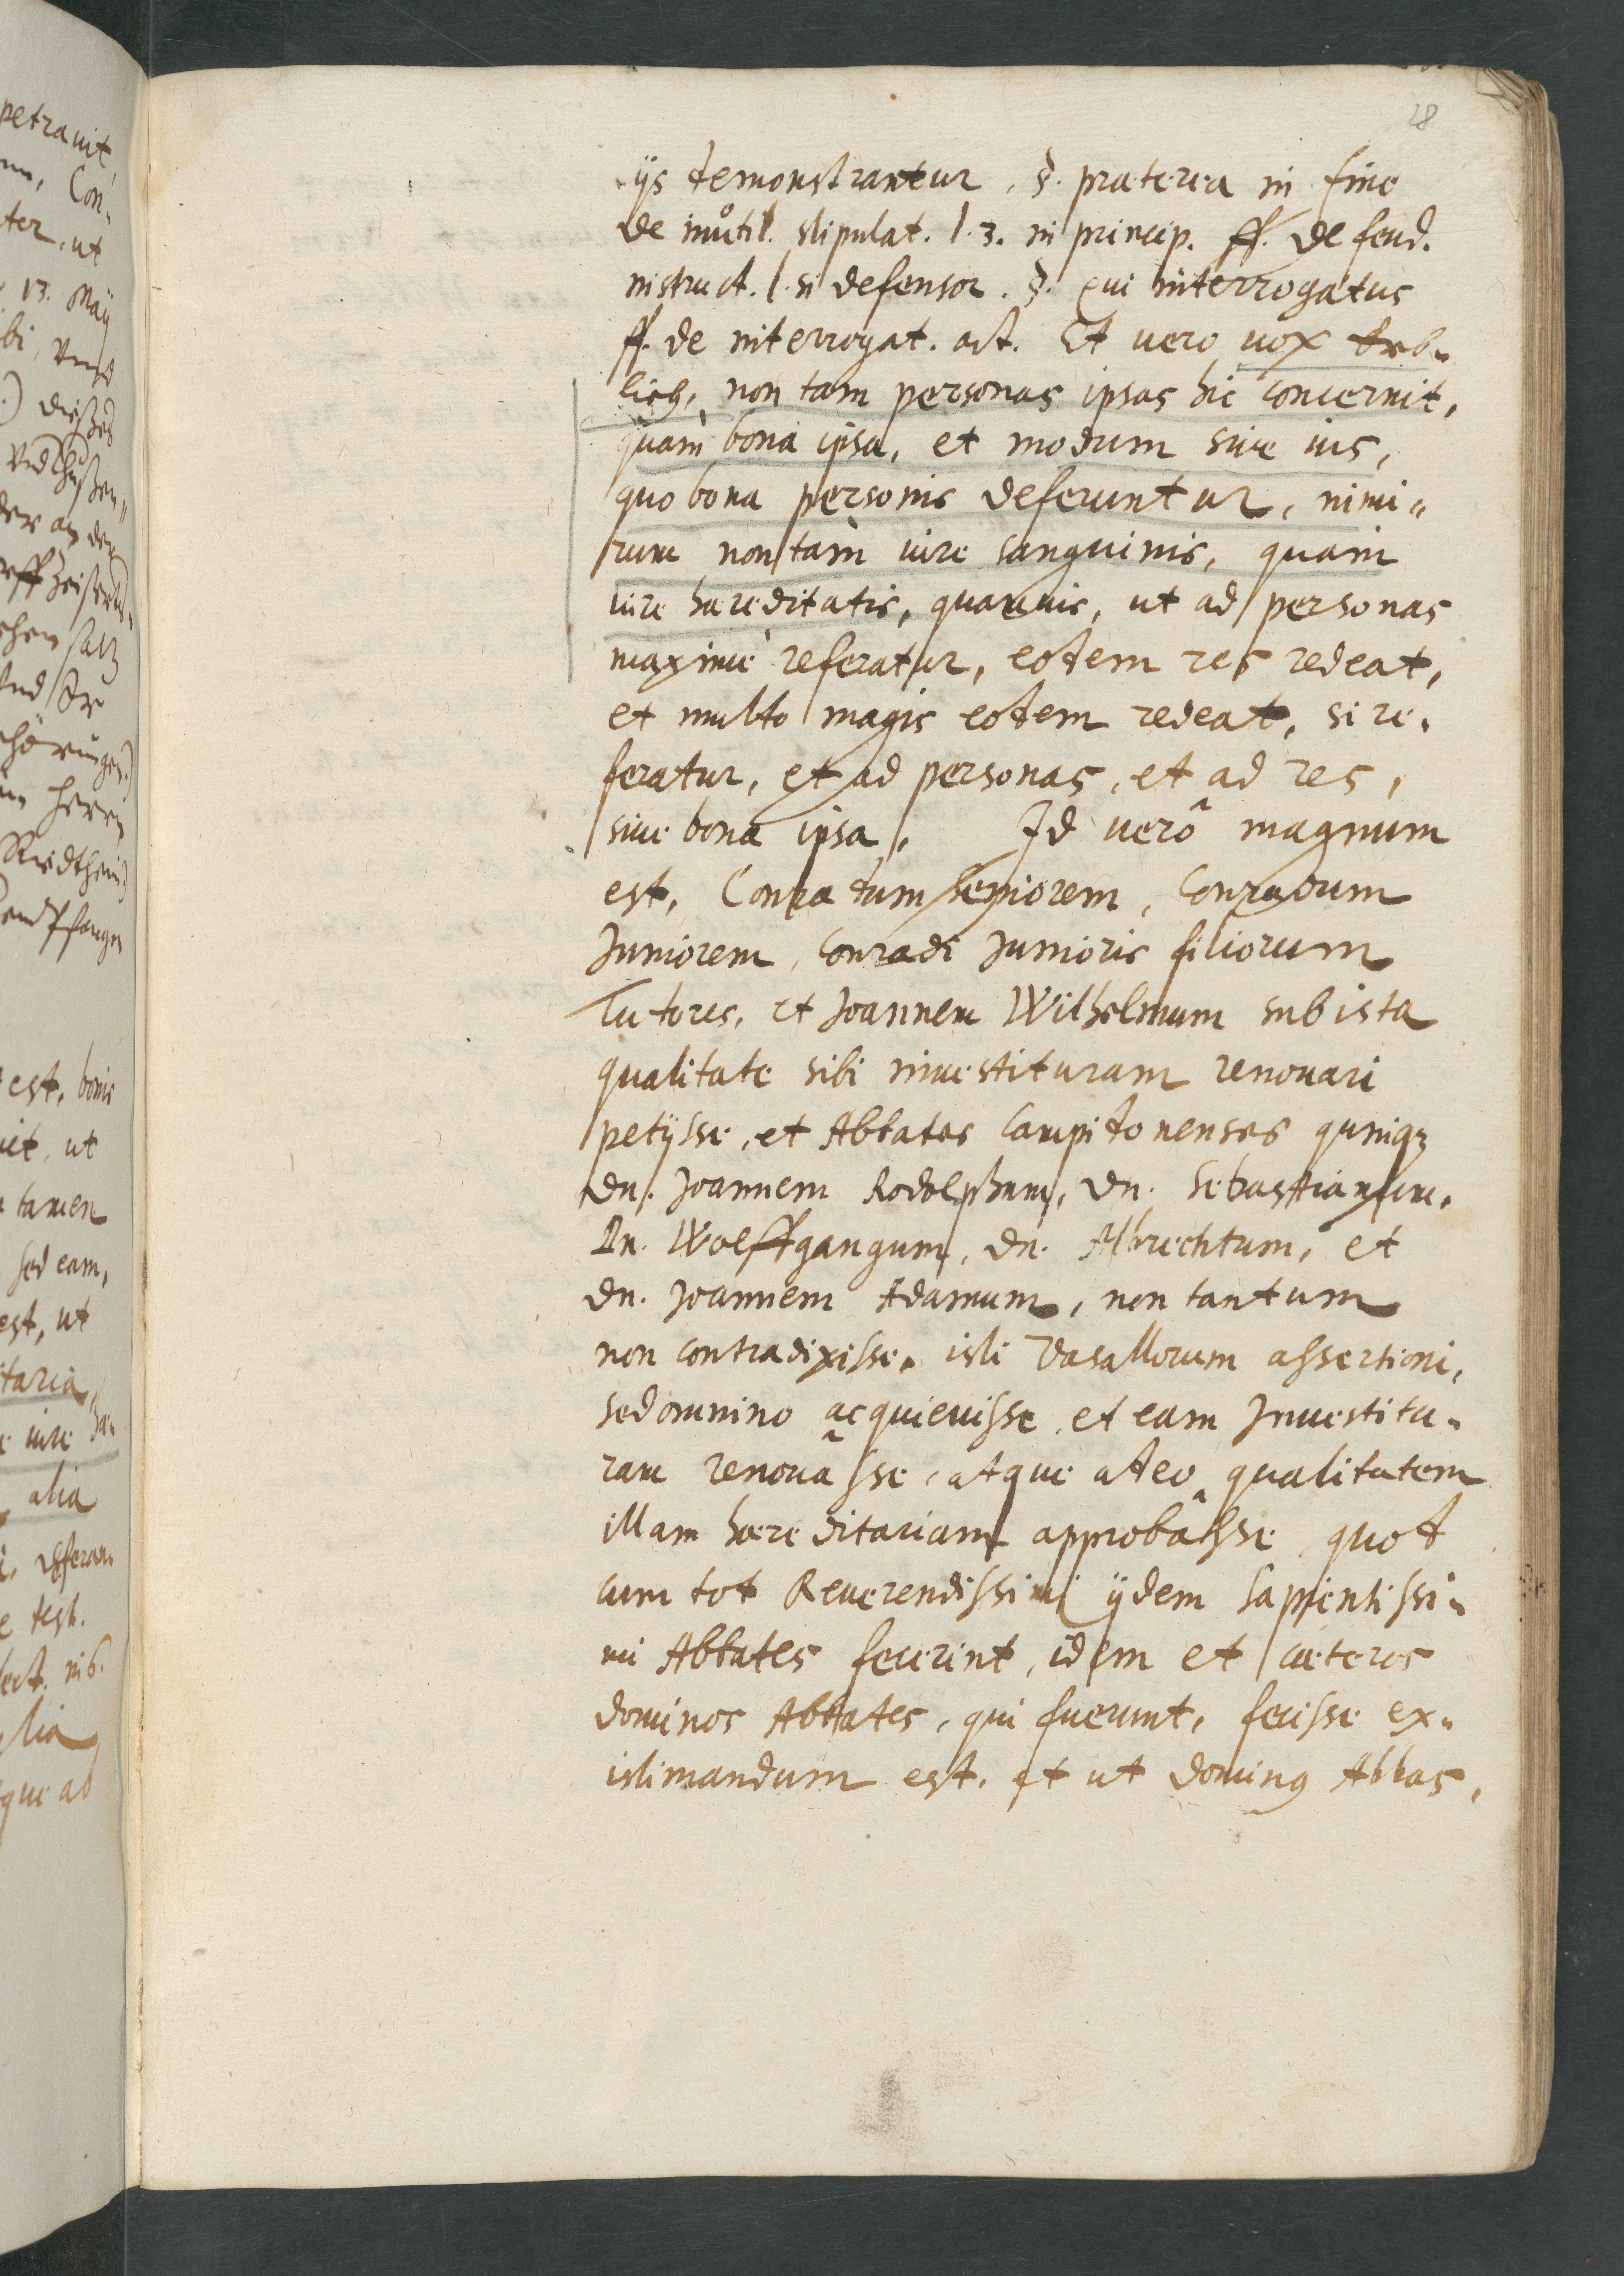 28
ijs demonstrantur, §. praeterea in fine
de inutil. stipulat. l. 3. in princip. ff. de feud.
instruct. l. si defensor. §. qui interrogatus
ff. de interrogat. act. Et vero vox Erb-
lich, non tam personas ipsas hic concernit,
quam bona ipsa, et modum sive ius,
quo bona personis deferuntur, nimi-
rum non tam iure sanguinis, quam
iure haereditatis, quamvis, ut ad personas
maxime referatur, eodem res redeat,
et multo magis eodem redeat, si re-
feratur, et ad personas, et ad res,
sive bona ipsa. Id verò magnum
est, Conradum Seniorem, Conradum
Juniorem, Conradi Junioris filiorum
Tutores, et Joannem Wilhelmum sub ista
qualitate sibi investituram renovari
petijsse, et Abbates Campidonenses quinq3
Dn. Joannem Rodolphum, Dn. Sebastianum,
Dn. Wolffgangum, Dn. Albrechtum, et
Dn. Joannem Adamum, non tantum
non contradixisse, isti Vasallorum assertioni,
sed omnino acquievisse, et eam Investitu-
ram renovasse, atque adeo qualitatem
illam haereditariam approbâsse, quod
cum tot Reverendissimi ijdem sapientissi-
mi Abbates fecerint, idem et caeteros
dominos Abbates, qui fuerunt, fecisse ex-
istimandum est. et ut dominus Abbas,
petravit,
Con-
ter, ut
13. Maij
dießes
est, bonis
ut
tamen
sed eam,
est, ut
taria,
iure hae-
alia
e test.
que ad